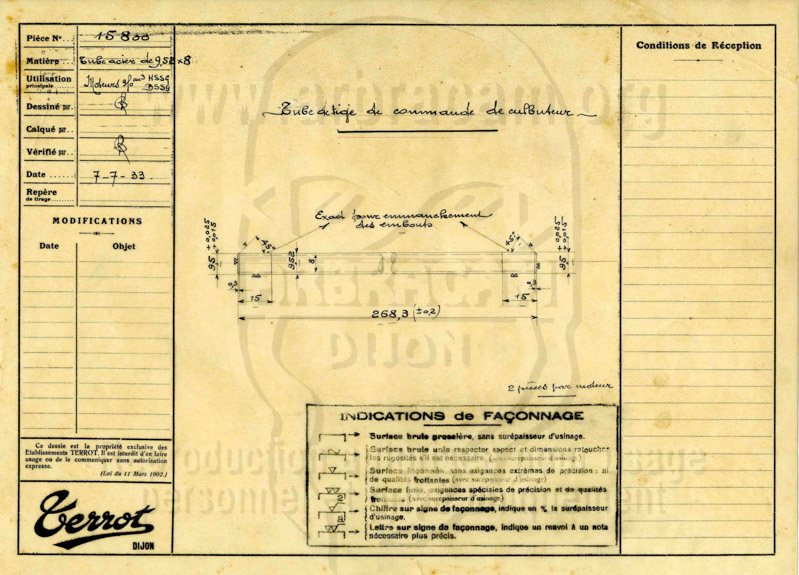 Pièce N°... 15800
Matière... Tube acier de 9,52 x 8
Utilisation principale... Moteurs HSSG
DSSG
Dessiné par..
Calqué par..
Vérifié par..
Date...... 7-7-33.
Repère de tirage
MODIFICATIONS
Date Objet
Ce dessin est la propriété exclusive des
Etablissements TERROT. Il est interdit d'en faire
usage ou de le communiquer sans autorisation
expresse.
(Loi du 11 Mars 1902.)
Terrot
DIJON
Tube de tige de commande de culbuteur
Exact pour emmanchement
des embouts
95 +0,025
+0,015
45°
9,52
8
45°
95 +0,025
+0,015
0,3
15
15
0,3
268,3 (±0,2)
2 pièces par moteur
INDICATIONS de FAÇONNAGE
Surface brute grossière, sans surépaisseur d'usinage.
Surface brute unie respecter aspect et dimensions retoucher
les rugosités s'il est nécessaire. (sans surépaisseur d'usinage)
Surface façonnée, sans exigences extrêmes de précision: ni
de qualités frottantes (avec surépaisseur d'usinage)
Surface finie, exigences spéciales de précision et de qualités
frottantes (avec surépaisseur d'usinage)
Chiffre sur signe de façonnage, indique en % la surépaisseur
d'usinage.
Lettre sur signe de façonnage, indique un renvoi à un nota
nécessaire plus précis.
Conditions de Réception
www.arbracam.org
ARBRACAM
DIJON